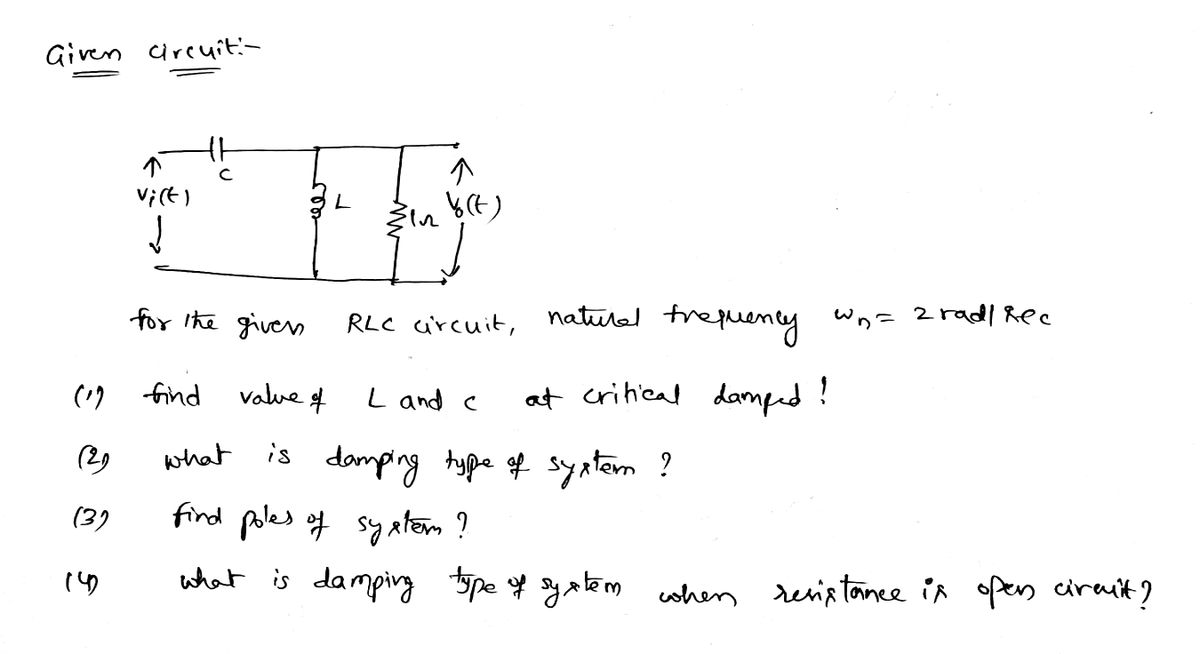 Given circuit:-
C
Vi(t)
L
1Ω
Vo(t)
for the given RLC circuit, natural frequency ωn = 2 rad/sec
(1) find value of L and C at critical damped!
(2) what is damping type of system ?
(3) find poles of system ?
(4) what is damping type of system when resistance is open circuit?